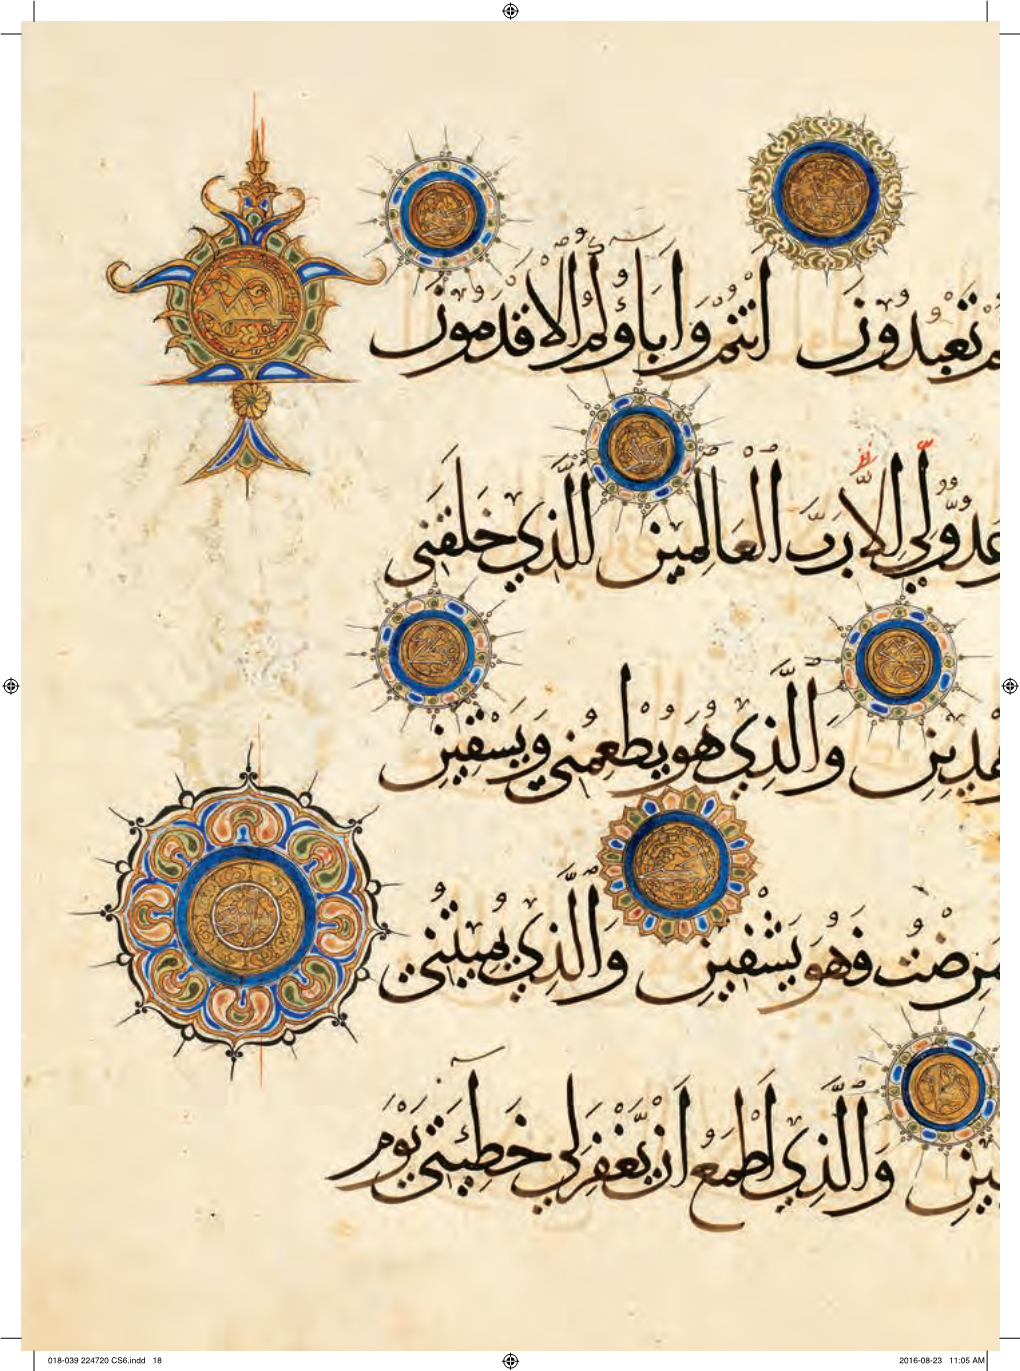 تَعْبُدُونَ أَنتُمْ وَآبَاؤُكُمُ الْأَقْدَمُونَ
عَدُوٌّ لِي إِلَّا رَبَّ الْعَالَمِينَ الَّذِي خَلَقَنِي
يَهْدِينِ وَالَّذِي هُوَ يُطْعِمُنِي وَيَسْقِينِ
مَرِضْتُ فَهُوَ يَشْفِينِ وَالَّذِي يُمِيتُنِي
يِينِ وَالَّذِي أَطْمَعُ أَن يَغْفِرَ لِي خَطِيئَتِي يَوْمَ
018-039 224720 CS6.indd 18 2016-08-23 11:05 AM